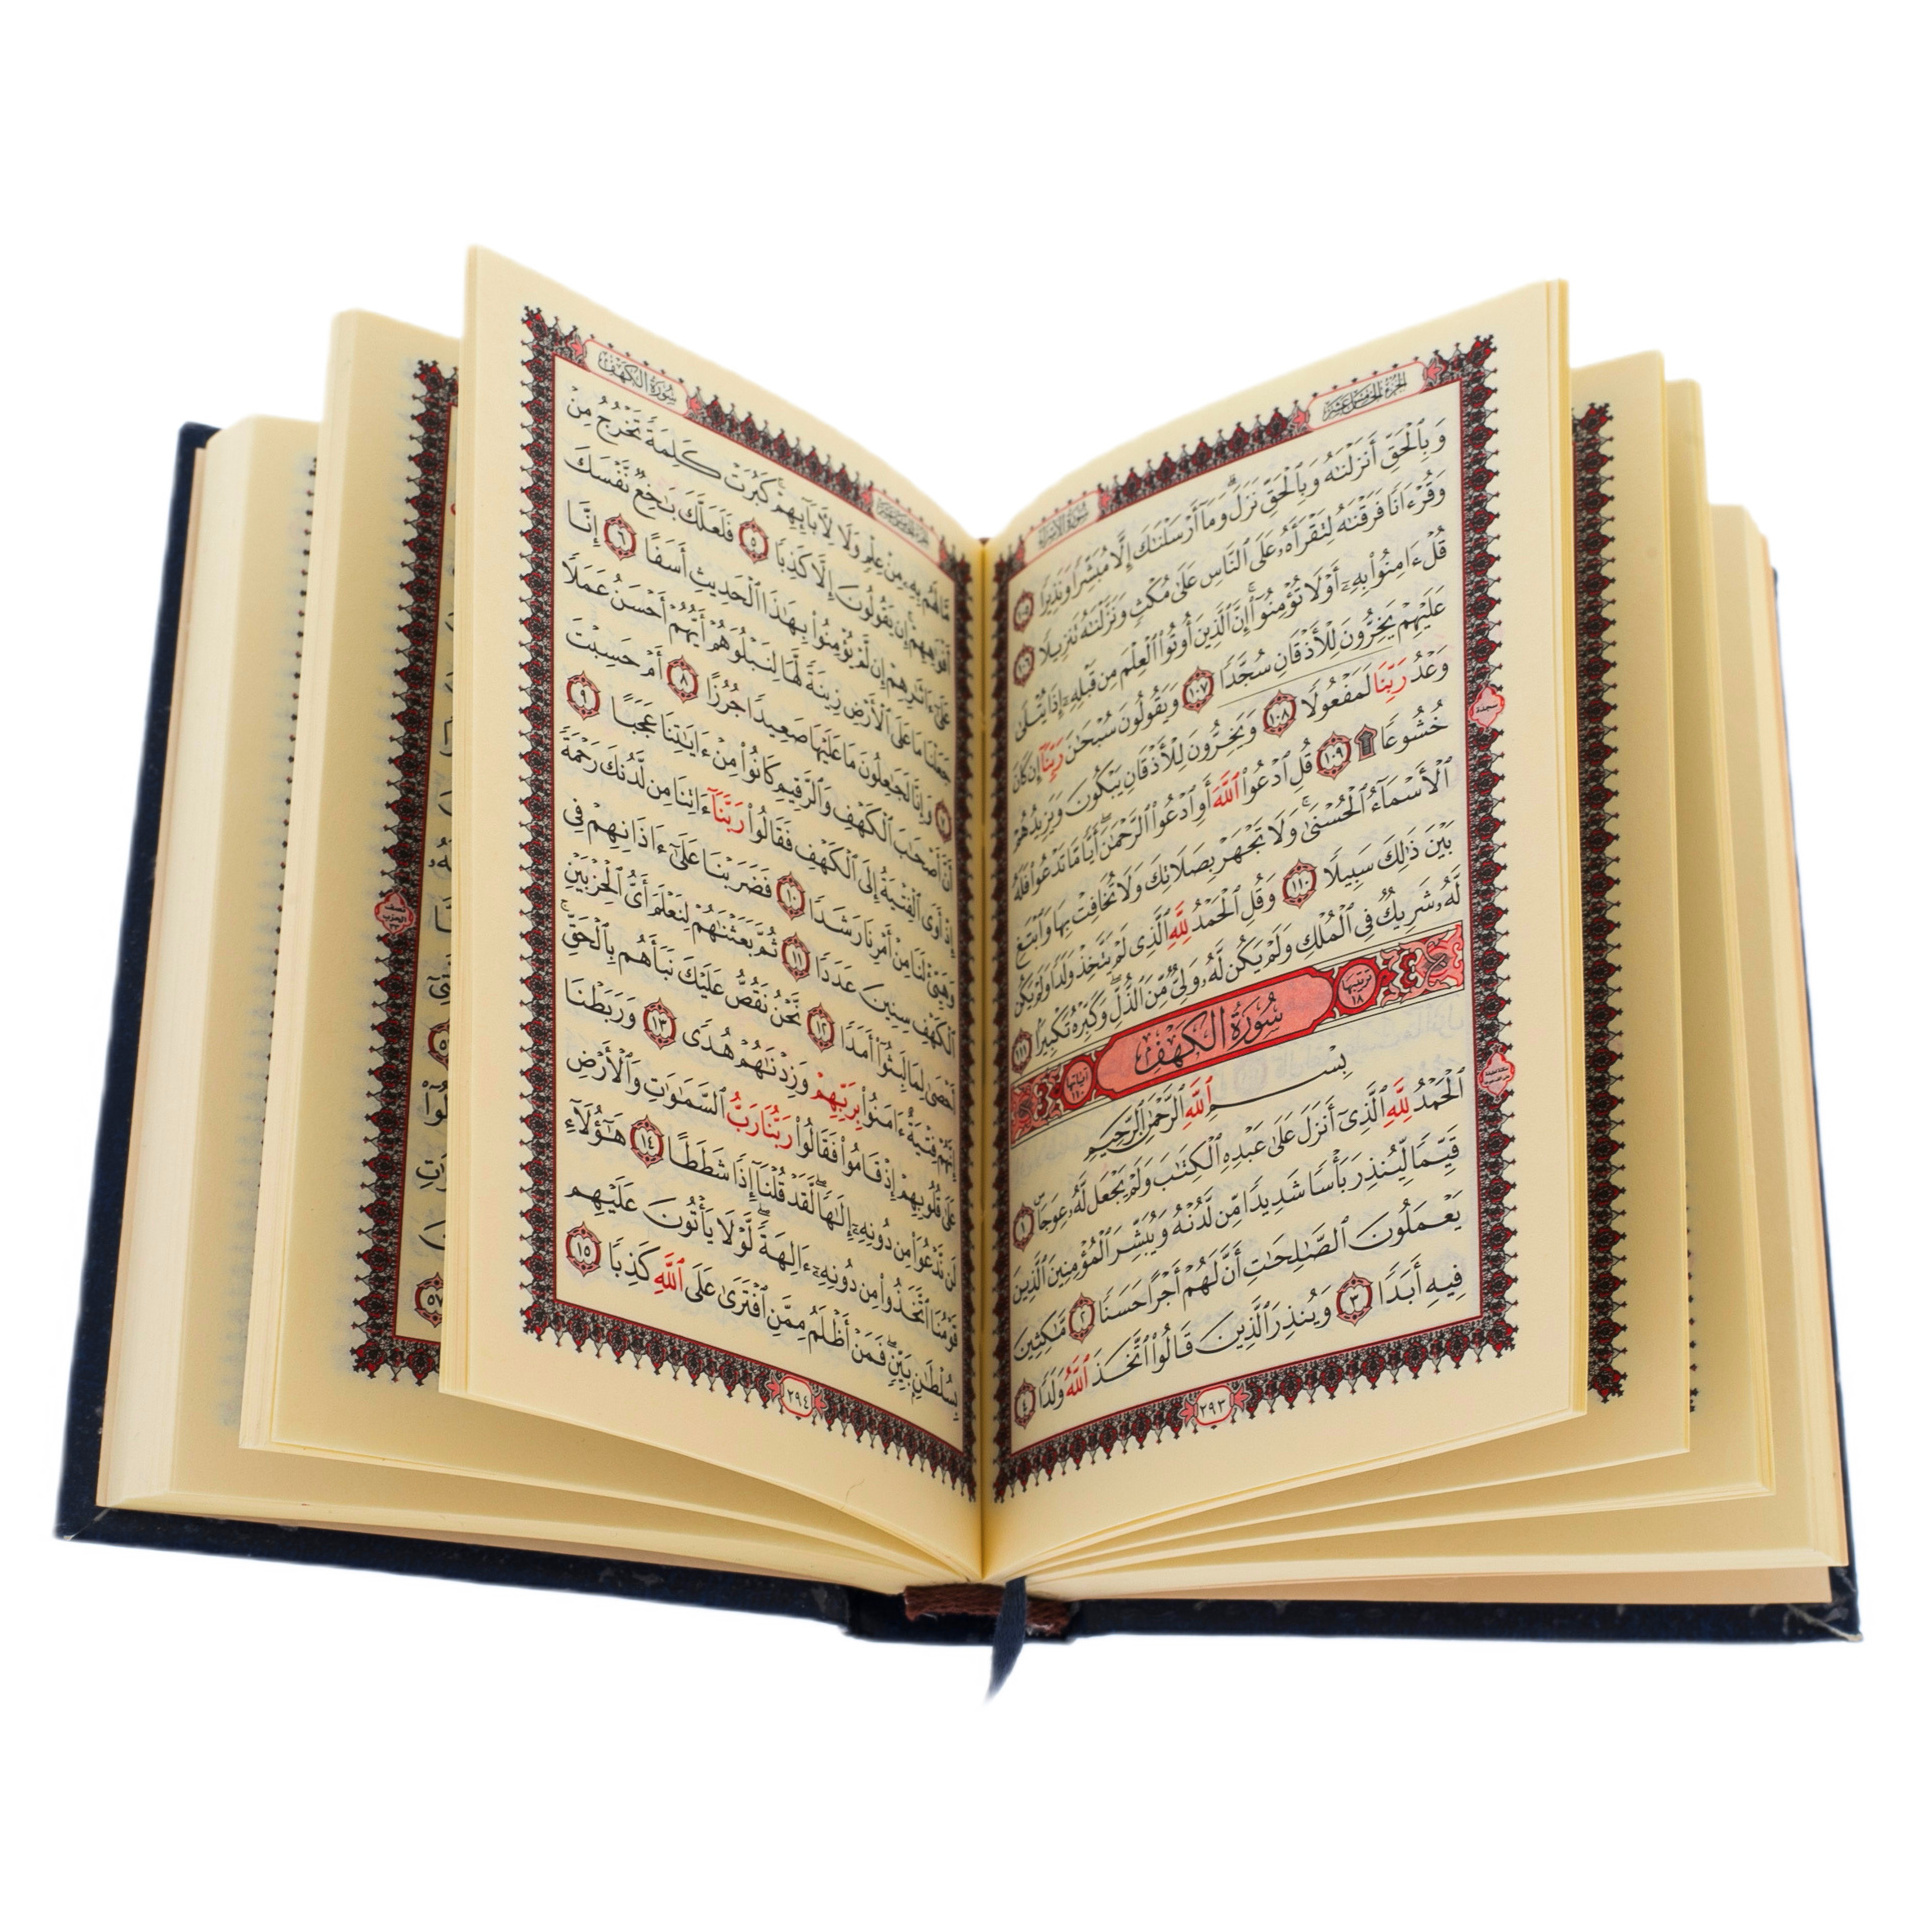 الجزء الخامس عشر
سورة الإسراء
وَبِٱلْحَقِّ أَنزَلْنَٰهُ وَبِٱلْحَقِّ نَزَلَ ۗ وَمَآ أَرْسَلْنَٰكَ إِلَّا مُبَشِّرًا وَنَذِيرًا ١٠٥
وَقُرْءَانًا فَرَقْنَٰهُ لِتَقْرَأَهُۥ عَلَى ٱلنَّاسِ عَلَىٰ مُكْثٍ وَنَزَّلْنَٰهُ تَنزِيلًا ١٠٦
قُلْ ءَامِنُوا۟ بِهِۦٓ أَوْ لَا تُؤْمِنُوٓا۟ ۚ إِنَّ ٱلَّذِينَ أُوتُوا۟ ٱلْعِلْمَ مِن قَبْلِهِۦٓ إِذَا يُتْلَىٰ
عَلَيْهِمْ يَخِرُّونَ لِلْأَذْقَانِ سُجَّدًا ١٠٧ وَيَقُولُونَ سُبْحَٰنَ رَبِّنَآ إِن كَانَ
وَعْدُ رَبِّنَا لَمَفْعُولًا ١٠٨ وَيَخِرُّونَ لِلْأَذْقَانِ يَبْكُونَ وَيَزِيدُهُمْ
خُشُوعًا ۩ ١٠٩ قُلِ ٱدْعُوا۟ ٱللَّهَ أَوِ ٱدْعُوا۟ ٱلرَّحْمَٰنَ ۖ أَيًّا مَّا تَدْعُوا۟ فَلَهُ
ٱلْأَسْمَآءُ ٱلْحُسْنَىٰ ۚ وَلَا تَجْهَرْ بِصَلَاتِكَ وَلَا تُخَافِتْ بِهَا وَٱبْتَغِ
بَيْنَ ذَٰلِكَ سَبِيلًا ١١٠ وَقُلِ ٱلْحَمْدُ لِلَّهِ ٱلَّذِى لَمْ يَتَّخِذْ وَلَدًا وَلَمْ يَكُن
لَّهُۥ شَرِيكٌ فِى ٱلْمُلْكِ وَلَمْ يَكُن لَّهُۥ وَلِىٌّ مِّنَ ٱلذُّلِّ ۖ وَكَبِّرْهُ تَكْبِيرًۢا ١١١
ترتيبها ١٨ سُورَةُ الكَهْفِ آياتها ١١٠
بِسْمِ ٱللَّهِ ٱلرَّحْمَٰنِ ٱلرَّحِيمِ
ٱلْحَمْدُ لِلَّهِ ٱلَّذِىٓ أَنزَلَ عَلَىٰ عَبْدِهِ ٱلْكِتَٰبَ وَلَمْ يَجْعَل لَّهُۥ عِوَجَا ۜ ١
قَيِّمًا لِّيُنذِرَ بَأْسًا شَدِيدًا مِّن لَّدُنْهُ وَيُبَشِّرَ ٱلْمُؤْمِنِينَ ٱلَّذِينَ
يَعْمَلُونَ ٱلصَّٰلِحَٰتِ أَنَّ لَهُمْ أَجْرًا حَسَنًا ٢ مَّٰكِثِينَ
فِيهِ أَبَدًا ٣ وَيُنذِرَ ٱلَّذِينَ قَالُوا۟ ٱتَّخَذَ ٱللَّهُ وَلَدًا ٤
٢٩٣
سجدة
سُورَةُ الكَهْفِ
مَّا لَهُم بِهِۦ مِنْ عِلْمٍ وَلَا لِءَابَآئِهِمْ ۚ كَبُرَتْ كَلِمَةً تَخْرُجُ مِنْ
أَفْوَٰهِهِمْ ۚ إِن يَقُولُونَ إِلَّا كَذِبًا ٥ فَلَعَلَّكَ بَٰخِعٌ نَّفْسَكَ
عَلَىٰٓ ءَاثَٰرِهِمْ إِن لَّمْ يُؤْمِنُوا۟ بِهَٰذَا ٱلْحَدِيثِ أَسَفًا ٦ إِنَّا
جَعَلْنَا مَا عَلَى ٱلْأَرْضِ زِينَةً لَّهَا لِنَبْلُوَهُمْ أَيُّهُمْ أَحْسَنُ عَمَلًا
٧ وَإِنَّا لَجَٰعِلُونَ مَا عَلَيْهَا صَعِيدًا جُرُزًا ٨ أَمْ حَسِبْتَ
أَنَّ أَصْحَٰبَ ٱلْكَهْفِ وَٱلرَّقِيمِ كَانُوا۟ مِنْ ءَايَٰتِنَا عَجَبًا ٩
إِذْ أَوَى ٱلْفِتْيَةُ إِلَى ٱلْكَهْفِ فَقَالُوا۟ رَبَّنَآ ءَاتِنَا مِن لَّدُنكَ رَحْمَةً
وَهَيِّئْ لَنَا مِنْ أَمْرِنَا رَشَدًا ١٠ فَضَرَبْنَا عَلَىٰٓ ءَاذَانِهِمْ فِى
ٱلْكَهْفِ سِنِينَ عَدَدًا ١١ ثُمَّ بَعَثْنَٰهُمْ لِنَعْلَمَ أَىُّ ٱلْحِزْبَيْنِ
أَحْصَىٰ لِمَا لَبِثُوٓا۟ أَمَدًا ١٢ نَّحْنُ نَقُصُّ عَلَيْكَ نَبَأَهُم بِٱلْحَقِّ ۚ
إِنَّهُمْ فِتْيَةٌ ءَامَنُوا۟ بِرَبِّهِمْ وَزِدْنَٰهُمْ هُدًى ١٣ وَرَبَطْنَا
عَلَىٰ قُلُوبِهِمْ إِذْ قَامُوا۟ فَقَالُوا۟ رَبُّنَا رَبُّ ٱلسَّمَٰوَٰتِ وَٱلْأَرْضِ
لَن نَّدْعُوَا۟ مِن دُونِهِۦٓ إِلَٰهًا ۖ لَّقَدْ قُلْنَآ إِذًا شَطَطًا ١٤ هَٰٓؤُلَآءِ
قَوْمُنَا ٱتَّخَذُوا۟ مِن دُونِهِۦٓ ءَالِهَةً ۖ لَّوْلَا يَأْتُونَ عَلَيْهِم
بِسُلْطَٰنٍۭ بَيِّنٍ ۖ فَمَنْ أَظْلَمُ مِمَّنِ ٱفْتَرَىٰ عَلَى ٱللَّهِ كَذِبًا ١٥
٢٩٤
نصف الحزب
٥٧